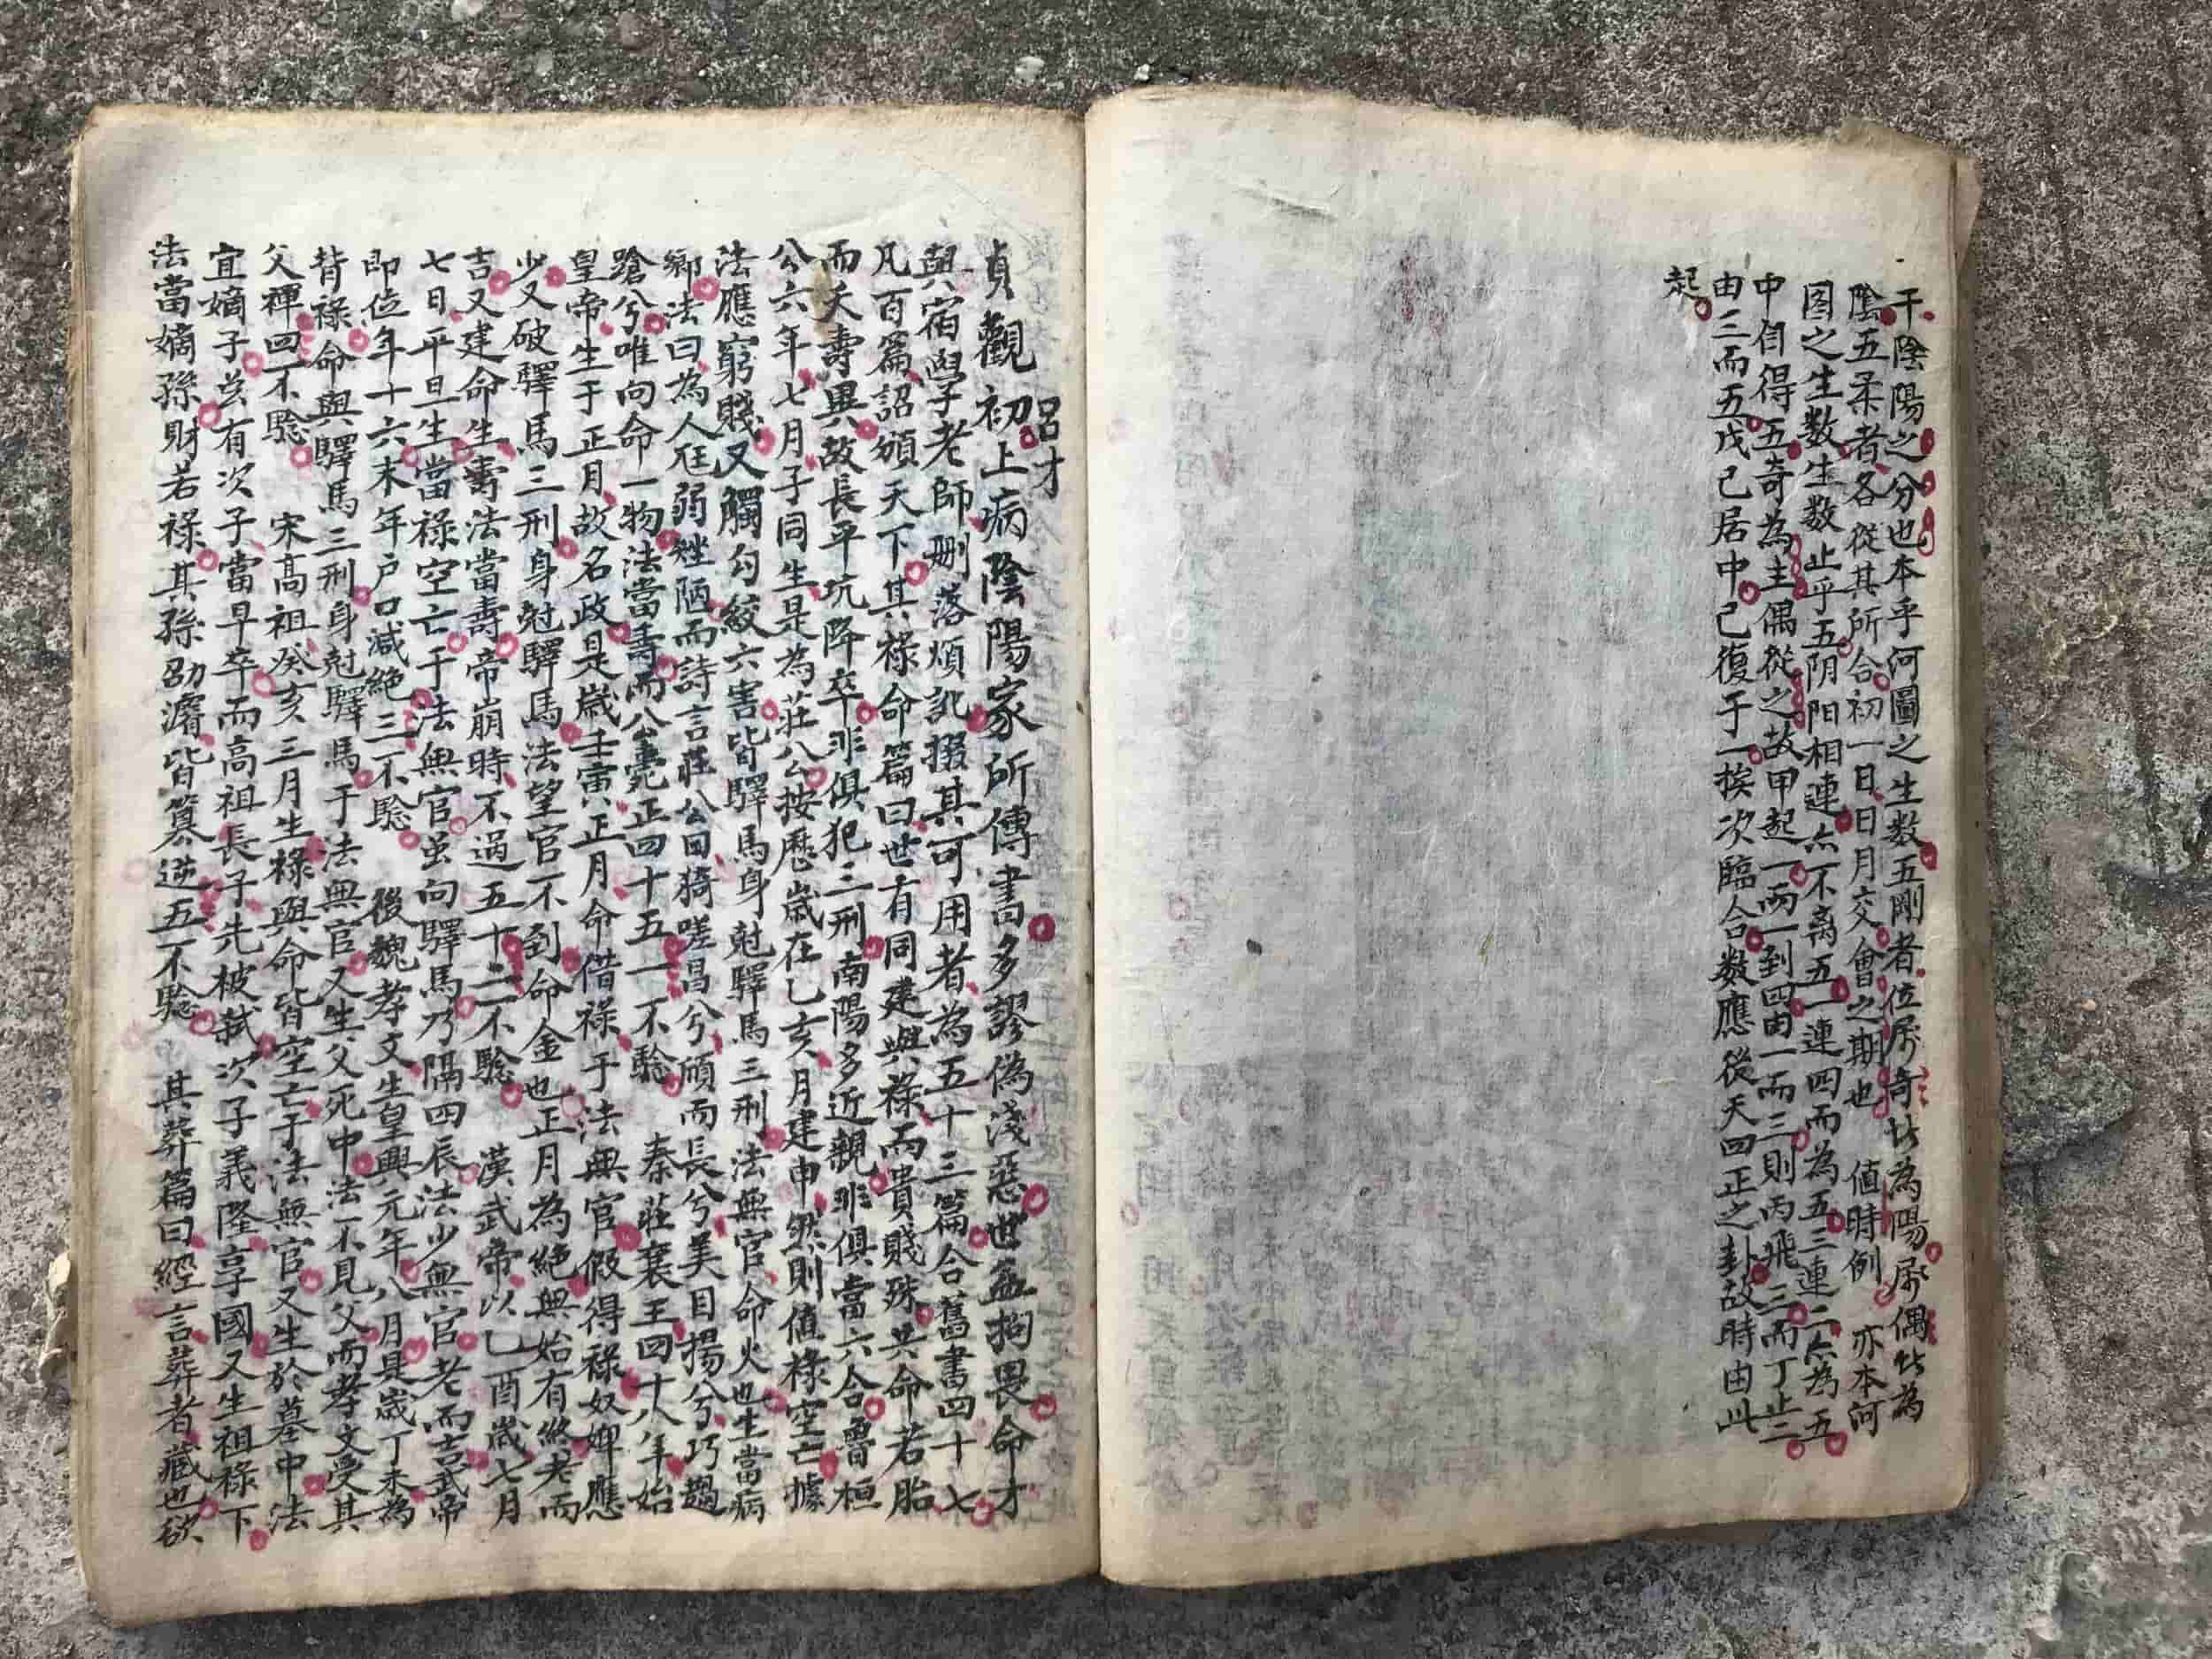 干陰陽之分也本乎何圖之生数五剛者位屬奇故為陽屬偶故為
陰五柔者各從其所合初一日日月交會之期也 值時例 亦本河
图之生数生数止乎五阴阳相連亦不离五一連四而為五三連二亦為五
中自得五奇為主偶從之故甲起一兩一到四由一而三則丙飛三而丁止二
由三而五戊己居中己復于一挨次臨合数應後天四正之卦故時由此
起
呂才
貞觀初上病陰陽家所傳書多謬偽淺惡世益拘畏命才
與宿學老師删落煩訛掇其可用者為五十三篇合舊書四十七
凡百篇詔頒天下其禄命篇曰世有同建與禄而貴賤殊共命若胎
而夭壽異故長平坑降卒非俱犯三刑南陽多近親非俱當六合魯桓
公六年七月子同生是為莊公按歷歲在乙亥月建申然則值禄空亡據
法應窮賤又觸勾絞六害皆驛馬身尅驛馬三刑法無官命火也生當病
鄉法曰為人尪弱矬陋而詩言莊公曰猗嗟昌兮頎而長兮美目揚兮巧趨
蹌兮唯向命一物法當壽而公薨正四十五一不騐 秦莊襄王四十八年始
皇帝生于正月故名政是歲壬寅正月命借禄于法無官假得禄奴婢應
少又破驛馬三刑身尅驛馬法望官不到命金也正月為絶無始有終老而
吉又建命生壽法當壽帝崩時不過五十二不騐 漢武帝以乙酉歲七月
七日平旦生當禄空亡于法無官虽向驛馬乃隔四辰法少無官老而吉武帝
即位年十六末年户口减絶三不騐 後魏孝文生皇興元年八月是歲丁未為
背禄命與驛馬三刑身尅驛馬于法無官又生父死中法不見父而孝文受其
父禪四不騐 宋高祖癸亥三月生禄與命皆空亡于法無官又生於墓中法
宜嫡子虽有次子當早卒而高祖長子先被弑次子義隆享國又生祖禄下
法當嫡孫財若禄其孫劭濬皆篡逆五不騐 其葬篇曰經言葬者藏也欲